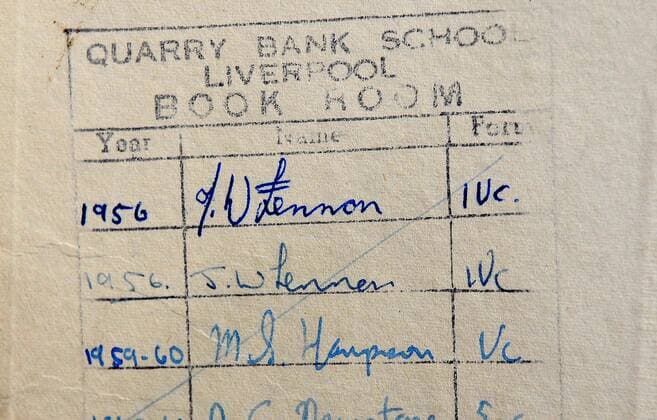 QUARRY BANK SCHOOL
LIVERPOOL
BOOK ROOM
Year Name Form
1956 J.W Lennon IVc.
1956. J.W Lennon IVc
1959-60 M.S. Vc